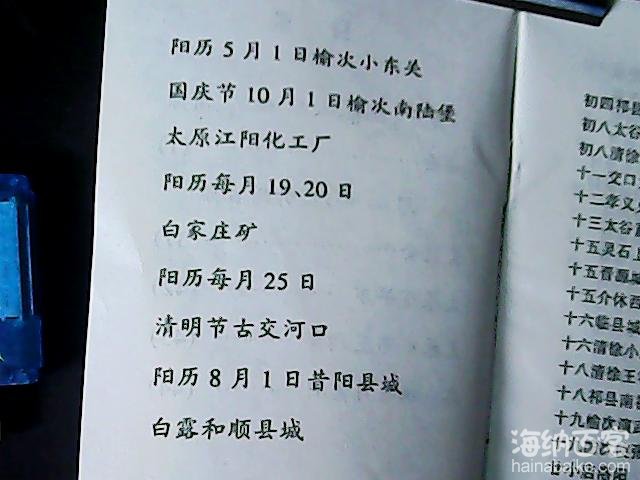 阳历5月1日榆次小东关
国庆节10月1日榆次南陆堡
太原江阳化工厂
阳历每月19、20日
白家庄矿
阳历每月25日
清明节古交河口
阳历8月1日昔阳县城
白露和顺县城
初四祁县
初八太谷
初八清徐
十一交口
十二孝义
十三太谷
十五灵石
十五晋源
十五介休
十六临县城
十六清徐小
十八清徐王
十八祁县南
十九榆次
海纳百客
hainabaike.com